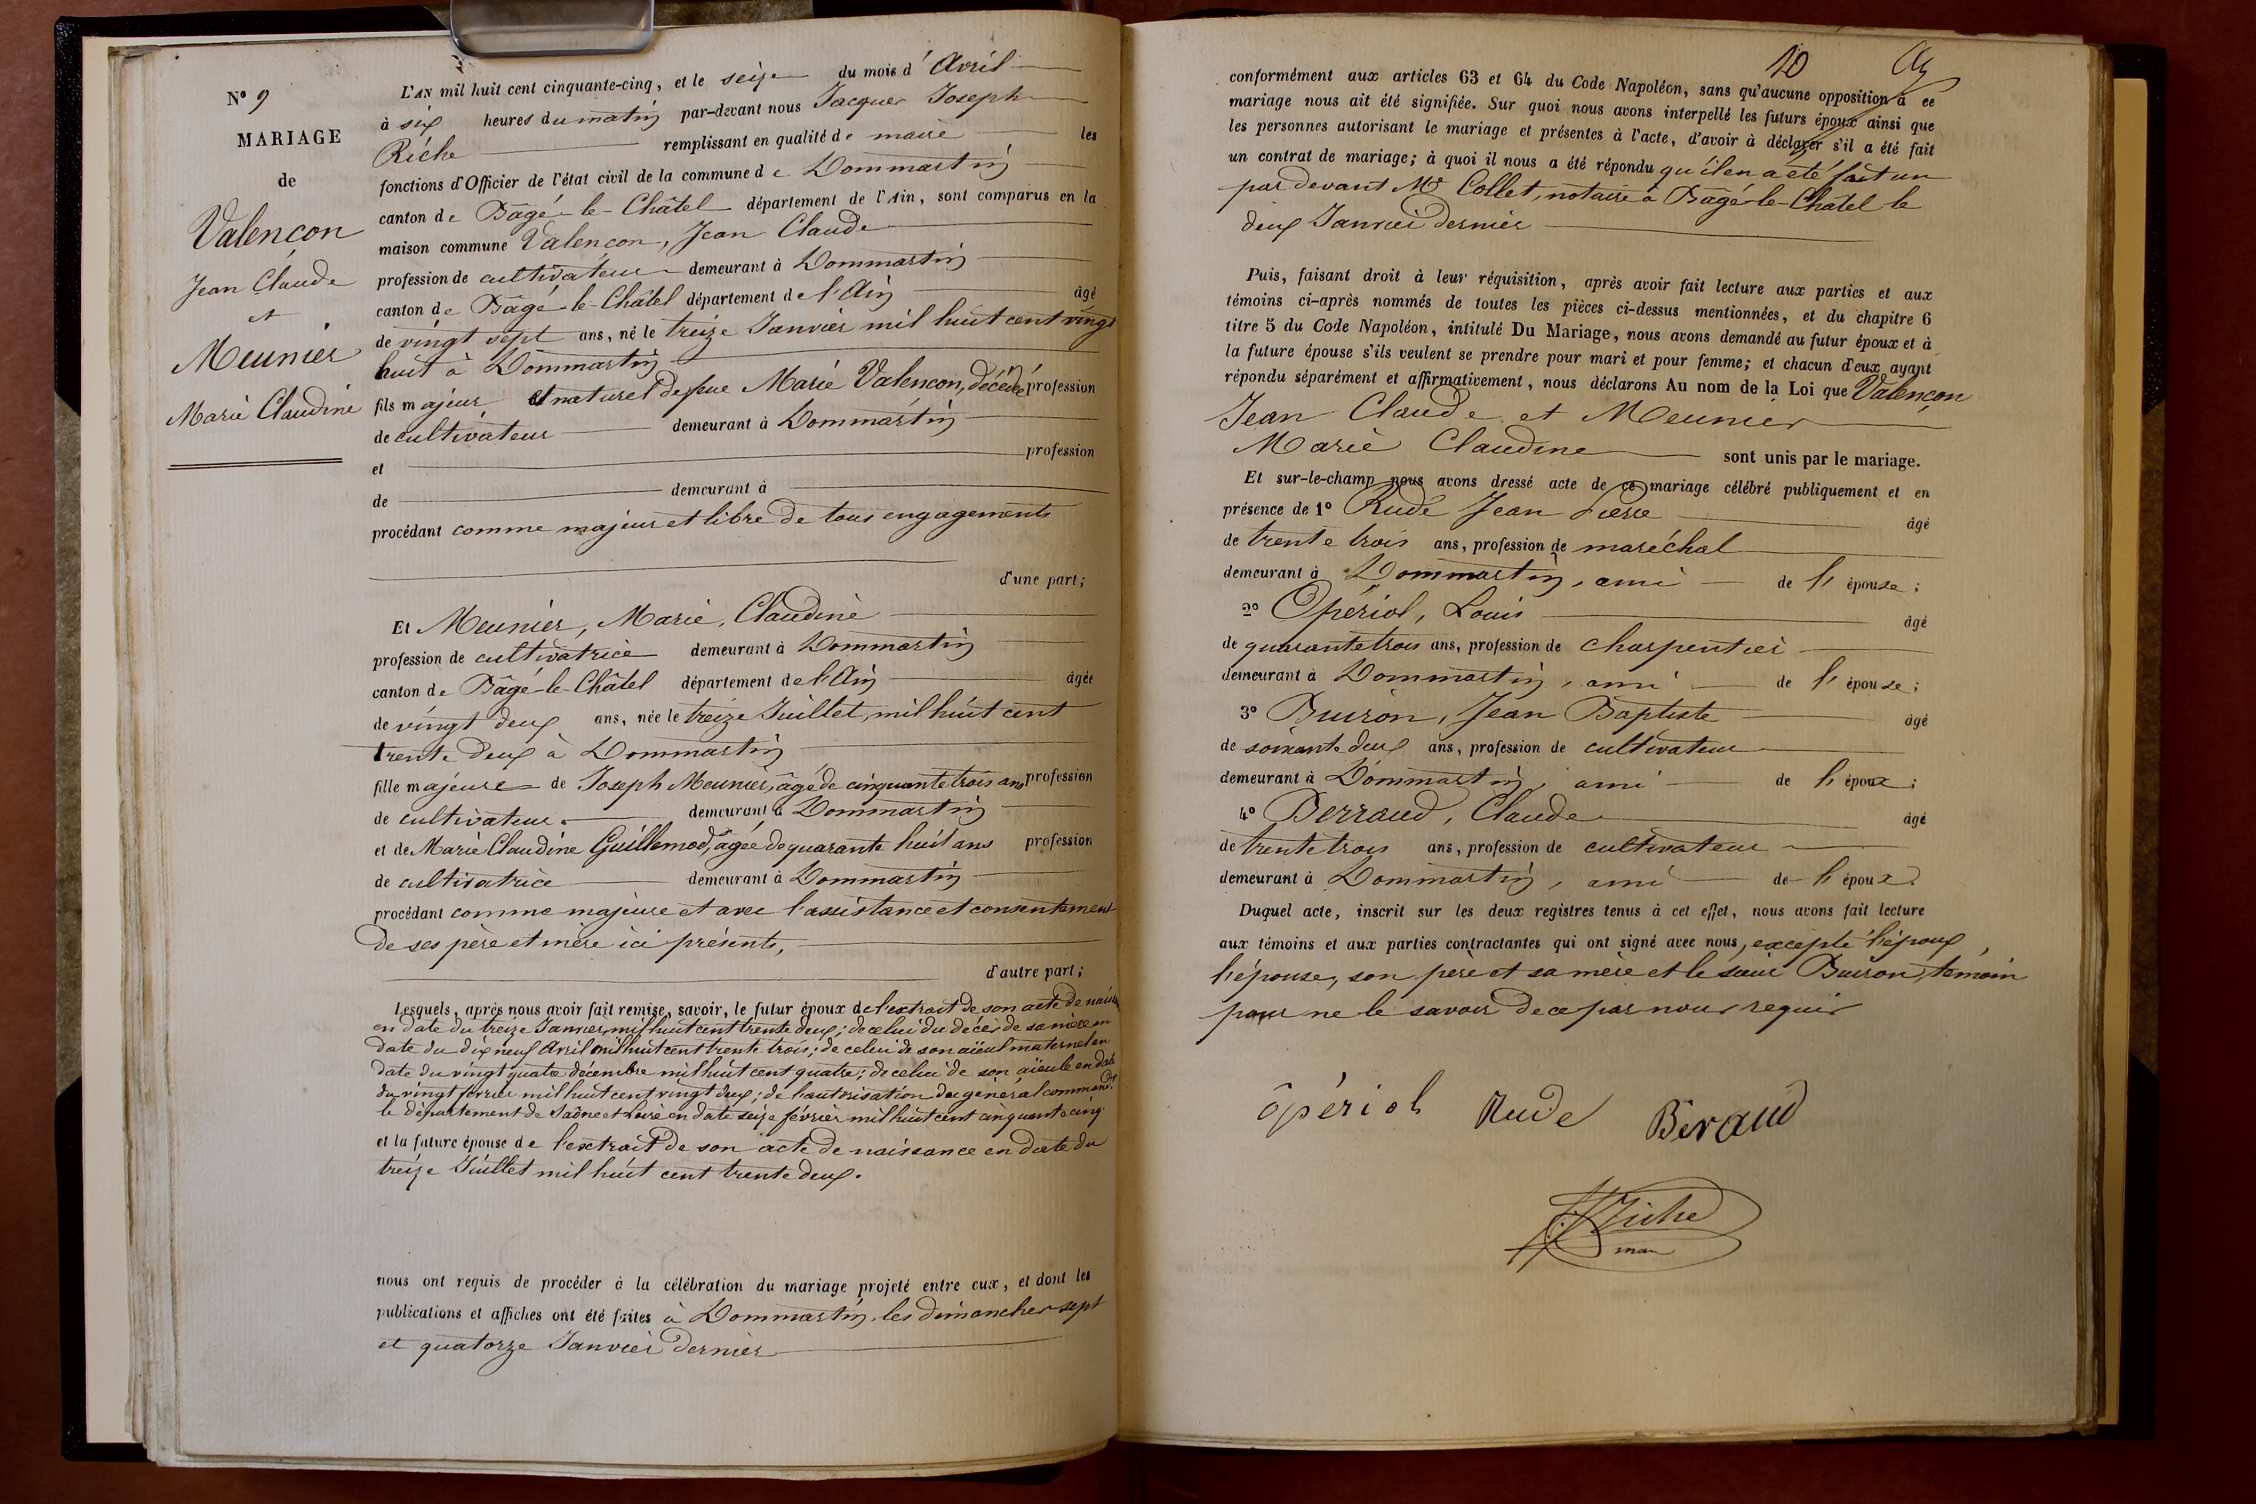 N° 9
MARIAGE
de
Valençon
Jean Claude
et
Meunier
Marie Claudine
L'AN mil huit cent cinquante-cinq, et le seize du mois d'Avril
à six heures du matin par-devant nous Jacques Joseph
Riche remplissant en qualité de maire les
fonctions d'Officier de l'état civil de la commune de Dommartin
canton de Bâgé-le-Châtel département de l'Ain, sont comparus en la
maison commune Valençon, Jean Claude
profession de cultivateur demeurant à Dommartin
canton de Bâgé-le-Châtel département de l'Ain âgé
de vingt sept ans, né le treize Janvier mil huit cent vingt
huit à Dommartin
fils majeur et naturel de feue Marie Valençon, décédée profession
de cultivateur demeurant à Dommartin
et profession
de demeurant à
procédant comme majeur et libre de tous engagements
d'une part;
Et Meunier, Marie, Claudine
profession de cultivatrice demeurant à Dommartin
canton de Bâgé-le-Châtel département de l'Ain âgée
de vingt deux ans, née le treize Juillet, mil huit cent
trente deux à Dommartin
fille majeure de Joseph Meunier, âgé de cinquante trois ans profession
de cultivateur demeurant à Dommartin
et de Marie Claudine Guillemod, âgée de quarante huit ans profession
de cultivatrice demeurant à Dommartin
procédant comme majeure et avec l'assistance et consentement
de ses père et mère ici présents,
d'autre part;
Lesquels, après nous avoir fait remise, savoir, le futur époux de l'extrait de son acte de
en date du treize Janvier mil huit cent trente deux; de celui du décès de sa mère en
date du dix neuf Avril mil huit cent trente trois; de celui de son aïeul maternel en
date du vingt quatre décembre mil huit cent quatre; de celui de son aïeule en date
du vingt février mil huit cent vingt deux; de l'autorisation du général command.t
le département de Saône et Loire en date seize février mil huit cent cinquante cinq
et la future épouse de l'extrait de son acte de naissance en date du
treize Juillet mil huit cent trente deux.
nous ont requis de procéder à la célébration du mariage projeté entre eux, et dont les
publications et affiches ont été faites à Dommartin, les dimanches sept
et quatorze Janvier dernier
10
conformément aux articles 63 et 64 du Code Napoléon, sans qu'aucune opposition à ce
mariage nous ait été signifiée. Sur quoi nous avons interpellé les futurs époux ainsi que
les personnes autorisant le mariage et présentes à l'acte, d'avoir à déclarer s'il a été fait
un contrat de mariage; à quoi il nous a été répondu qu'il en a été fait un
par devant Me Collet, notaire à Bâgé-le-Châtel le
deux Janvier dernier
Puis, faisant droit à leur réquisition, après avoir fait lecture aux parties et aux
témoins ci-après nommés de toutes les pièces ci-dessus mentionnées, et du chapitre 6
titre 5 du Code Napoléon, intitulé Du Mariage, nous avons demandé au futur époux et à
la future épouse s'ils veulent se prendre pour mari et pour femme; et chacun d'eux ayant
répondu séparément et affirmativement, nous déclarons Au nom de la Loi que Valençon
Jean Claude et Meunier
Marie Claudine sont unis par le mariage.
Et sur-le-champ nous avons dressé acte de ce mariage célébré publiquement et en
présence de 1° Rude Jean Pierre âgé
de trente trois ans, profession de maréchal
demeurant à Dommartin, ami de l'épouse;
2° Opériol, Louis âgé
de quarante trois ans, profession de charpentier
demeurant à Dommartin, ami de l'épouse;
3° Buiron, Jean Baptiste âgé
de soixante deux ans, profession de cultivateur
demeurant à Dommartin, ami de l'époux;
4° Berraud, Claude âgé
de trente trois ans, profession de cultivateur
demeurant à Dommartin, ami de l'époux.
Duquel acte, inscrit sur les deux registres tenus à cet effet, nous avons fait lecture
aux témoins et aux parties contractantes qui ont signé avec nous, excepté l'époux,
l'épouse, son père et sa mère et le sieur Buiron, témoin
pour ne le savoir de ce par nous requis
ôpériol Rude Béraud
J. J. Riche
maire